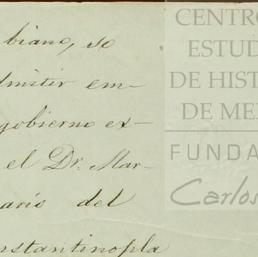 biano, se
dmitir em-
gobierno ex-
el Dr. Mar-
ario del
nstantinopla
CENTRO
ESTUD
DE HIST
DE ME
FUNDA
Carlos